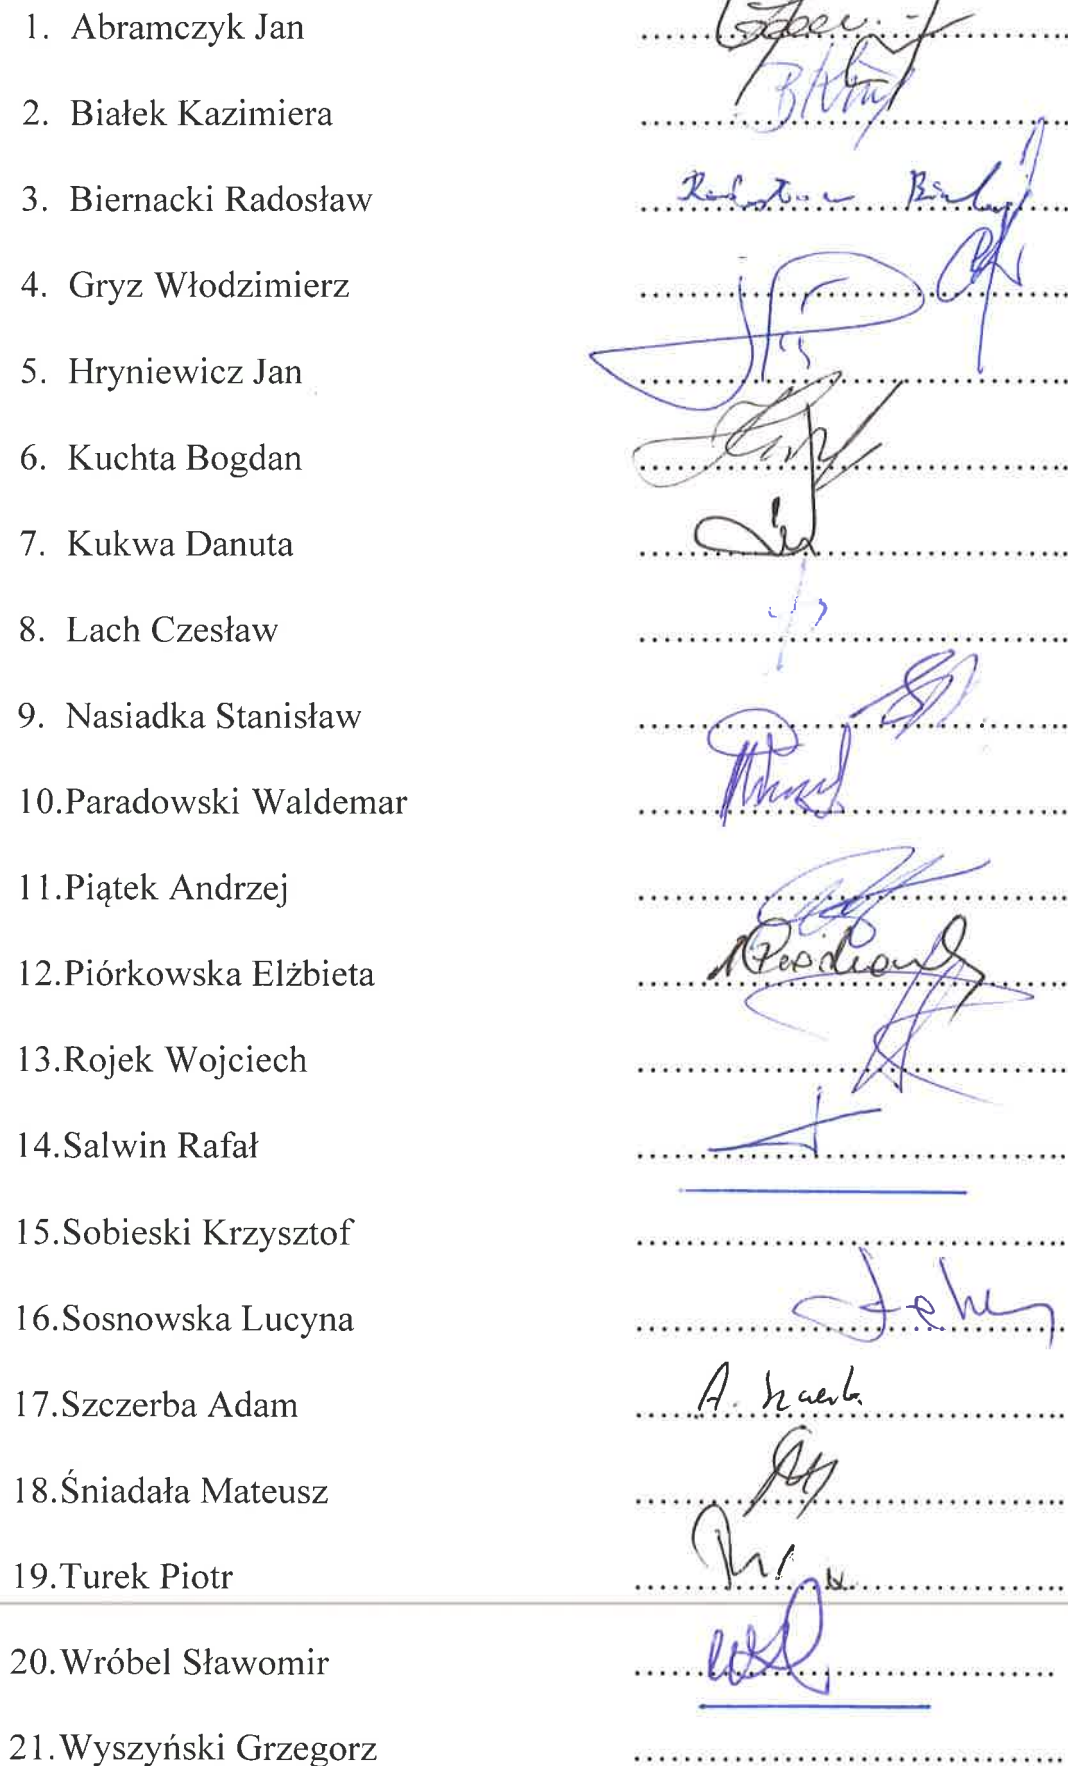 1. Abramczyk Jan
2. Białek Kazimiera
3. Biernacki Radosław
4. Gryz Włodzimierz
5. Hryniewicz Jan
6. Kuchta Bogdan
7. Kukwa Danuta
8. Lach Czesław
9. Nasiadka Stanisław
10.Paradowski Waldemar
11.Piątek Andrzej
12.Piórkowska Elżbieta
13.Rojek Wojciech
14.Salwin Rafał
15.Sobieski Krzysztof
16.Sosnowska Lucyna
17.Szczerba Adam
18.Śniadała Mateusz
19.Turek Piotr
20.Wróbel Sławomir
21.Wyszyński Grzegorz